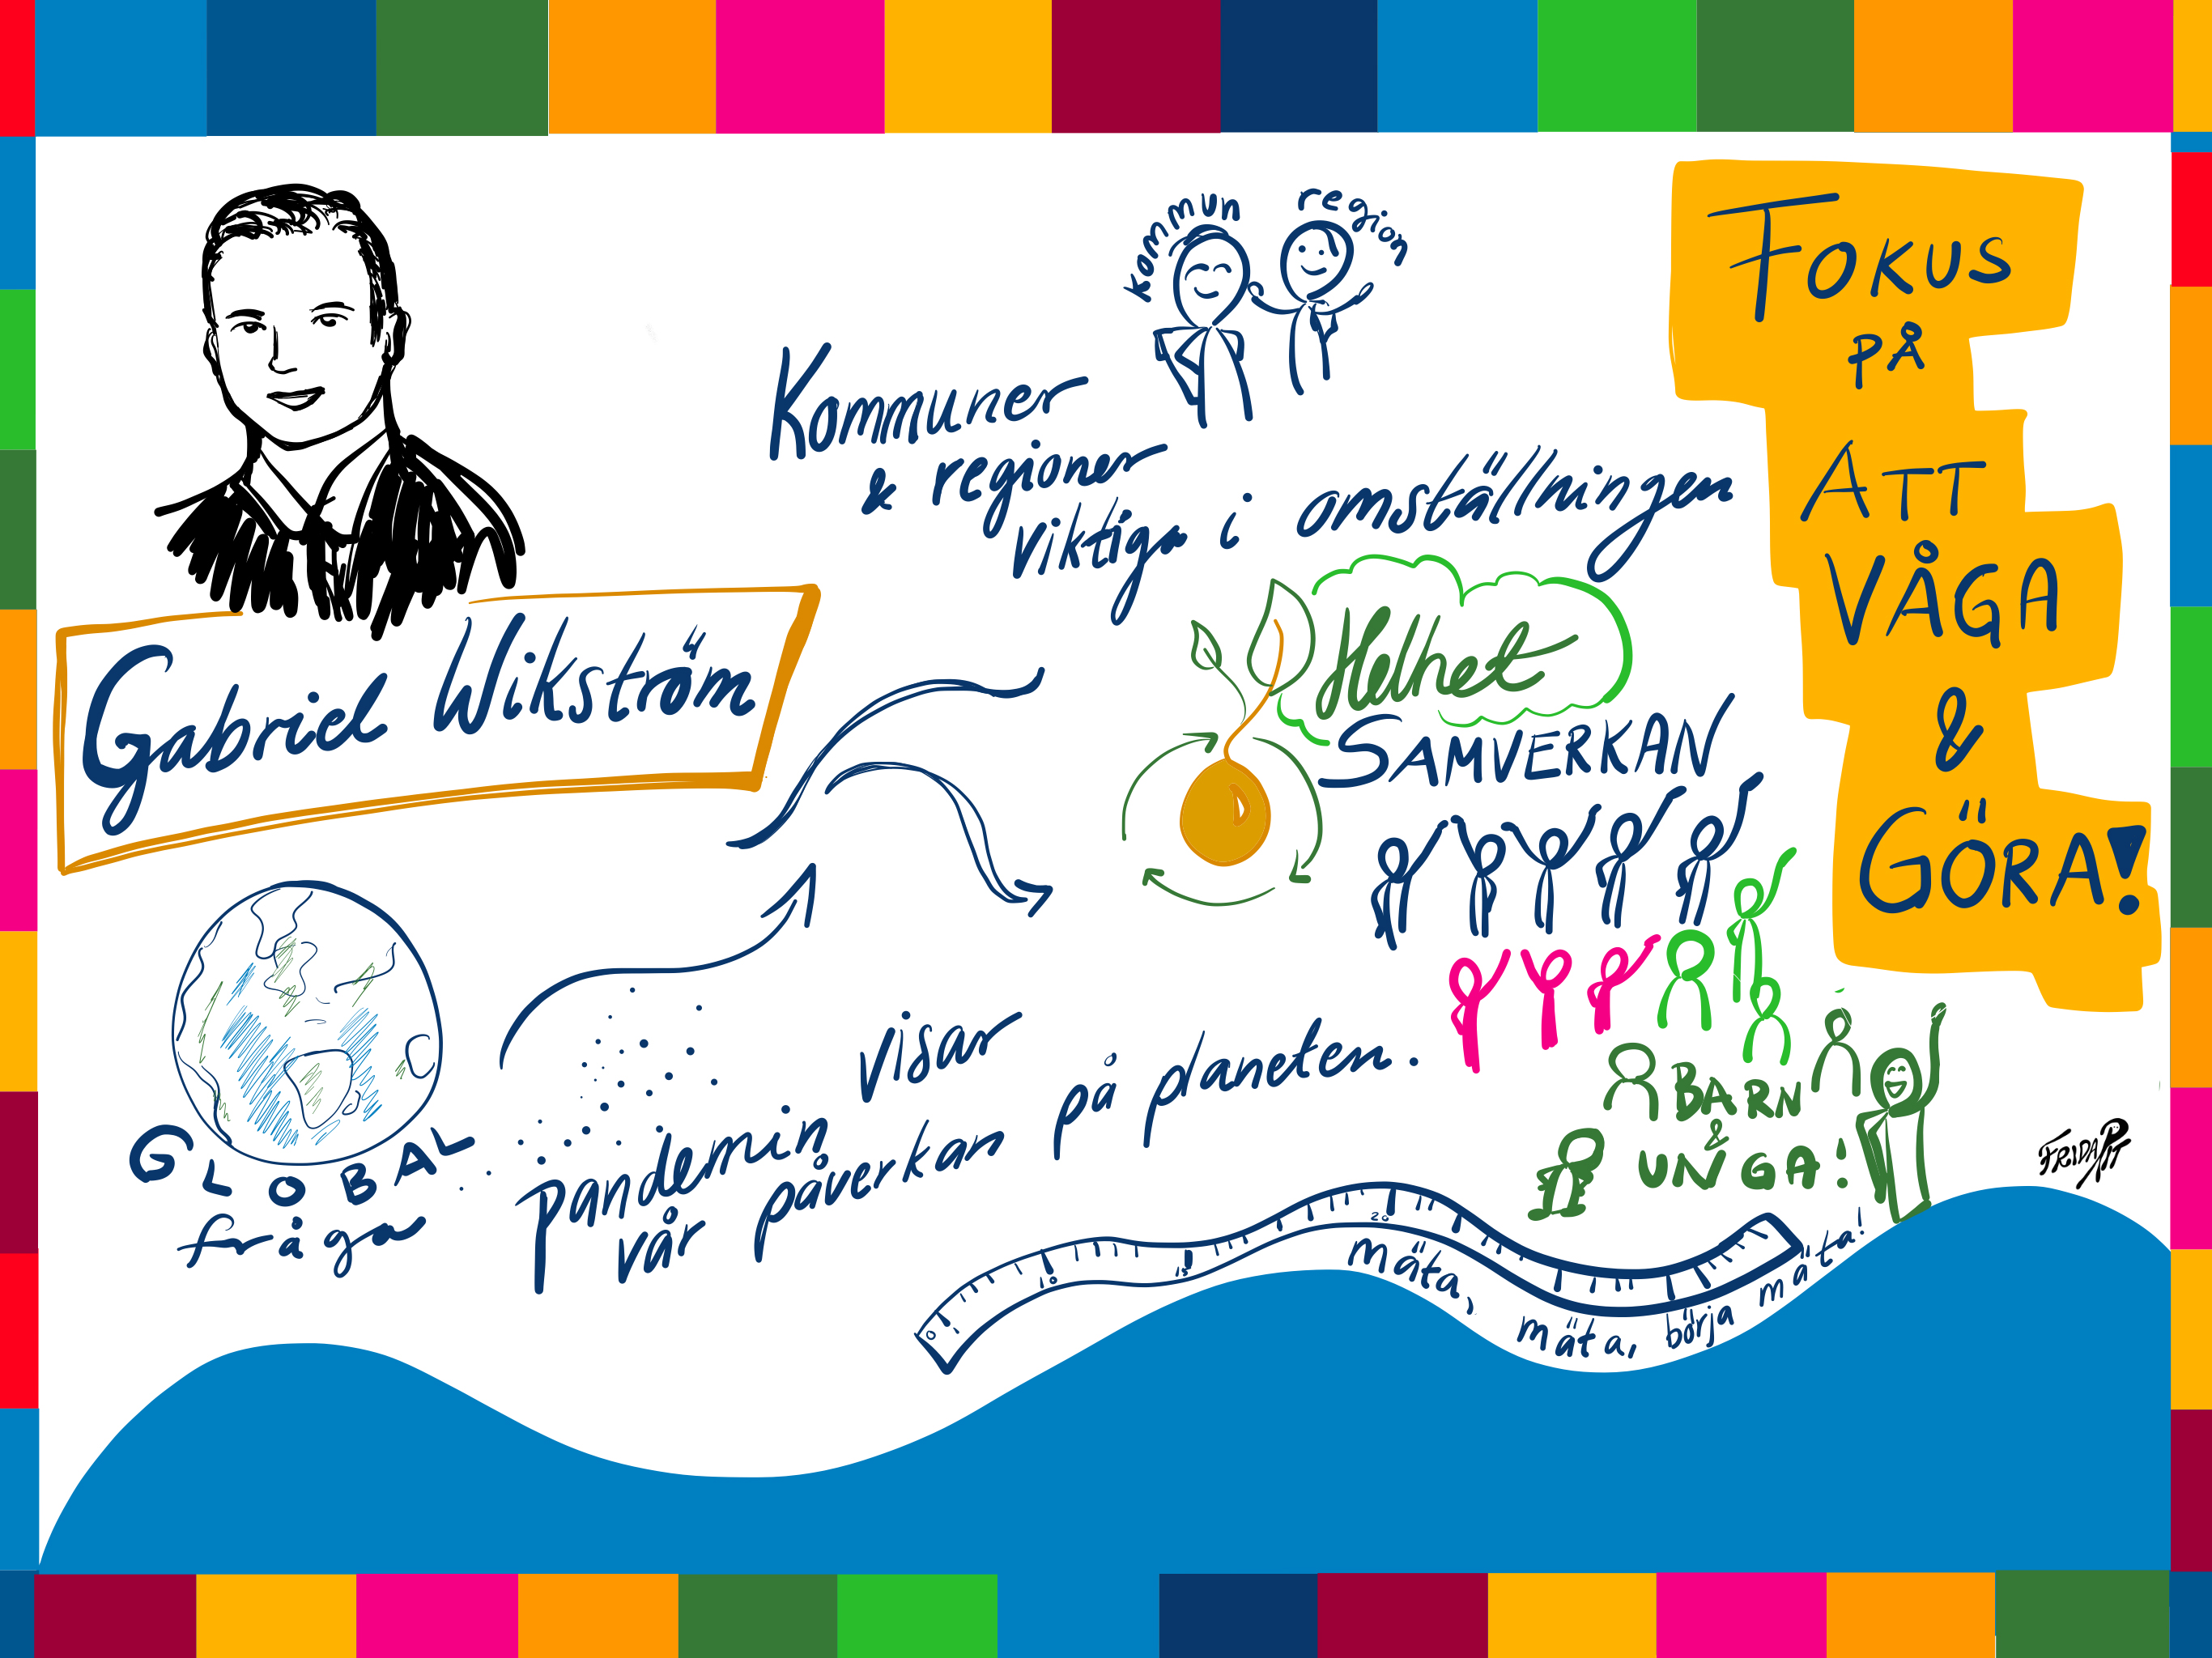 kommun
region
Kommuner
& regioner
viktiga i omställningen
Gabriel Wikström
Helhet
SAMVERKAN
FOKUS
PÅ
ATT
VÅGA
&
GÖRA!
GLOBAL
fråga
pandemin visar
vår påverkan på planeten.
BARN
&
UNGA!
0
10
15
20
mäta,
mäta, börja mäta!
FRIDA P